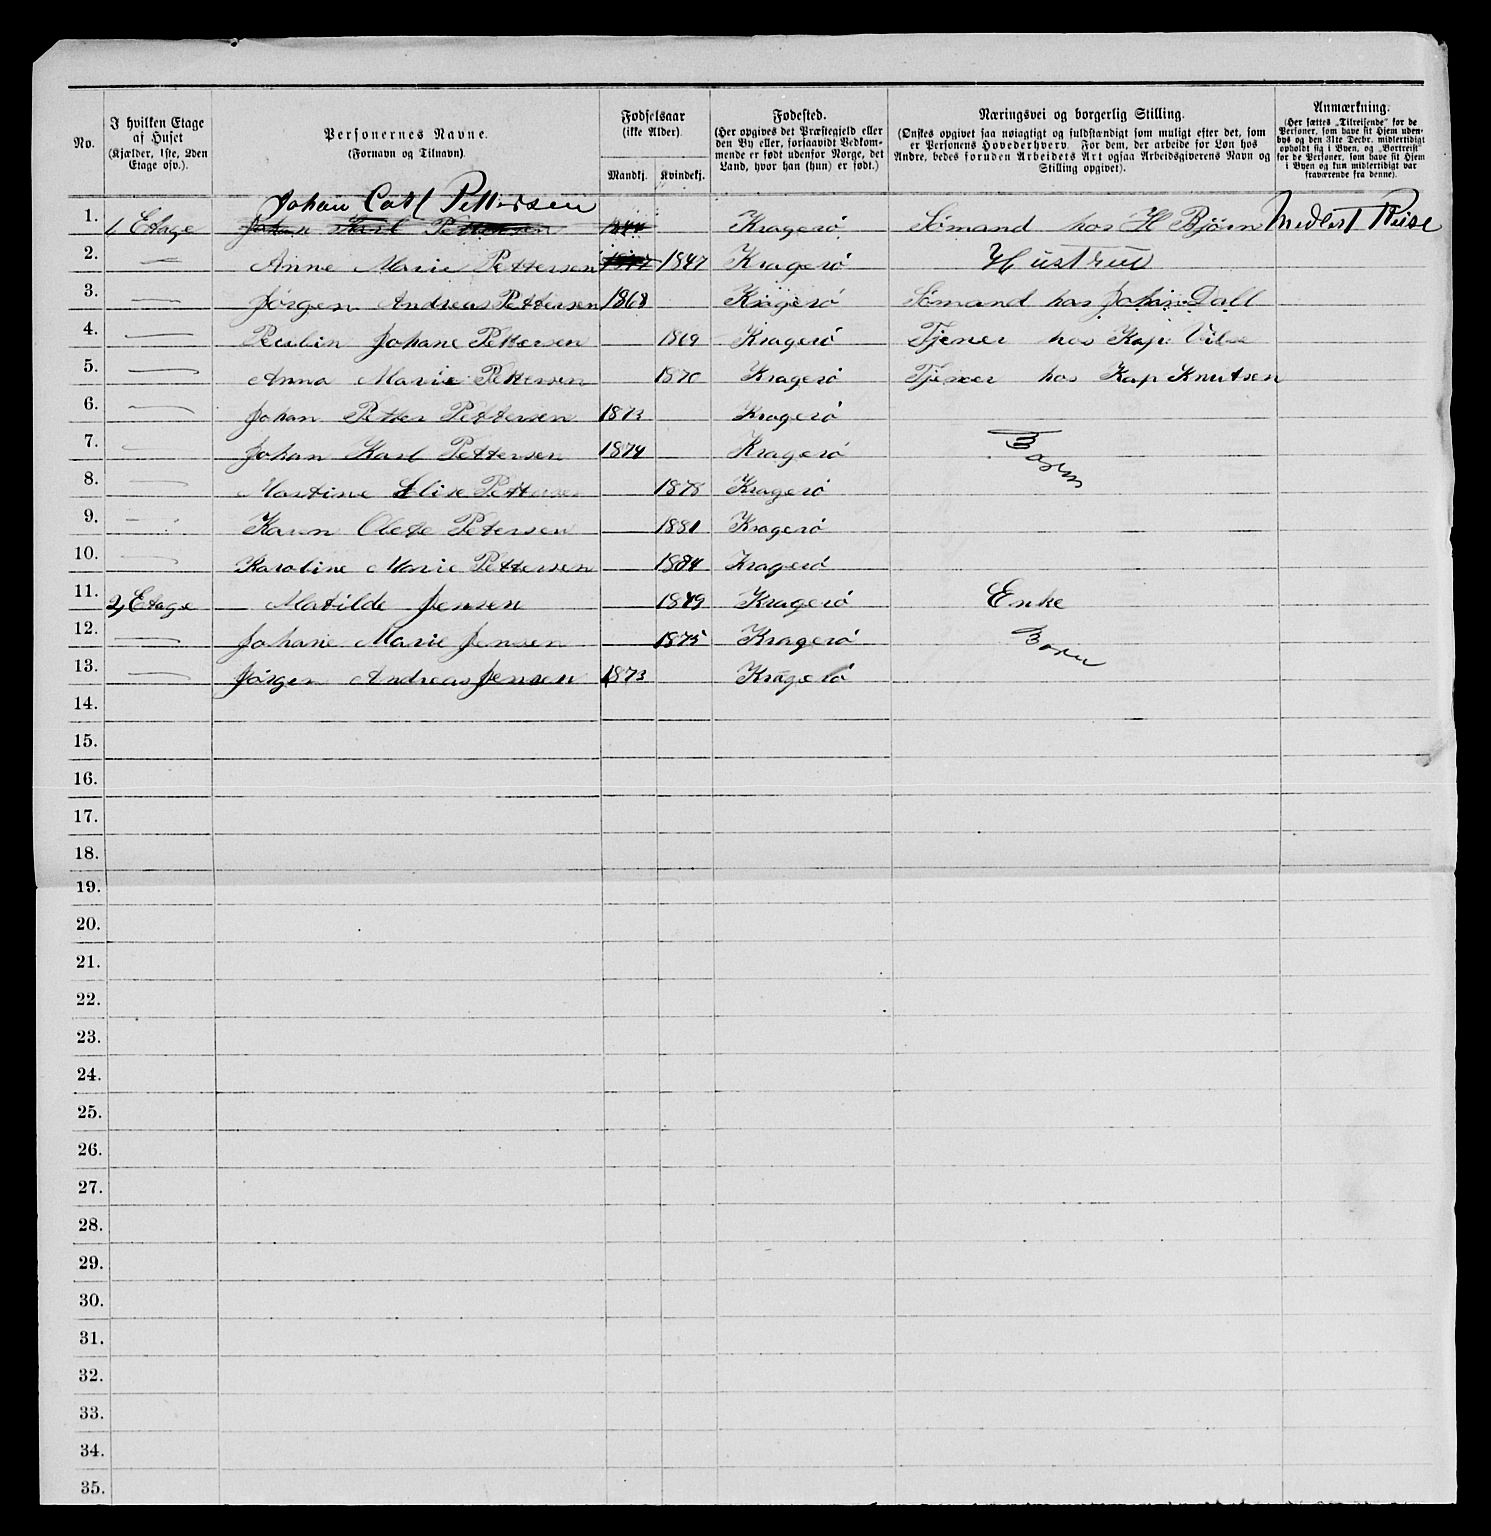 No.
I hvilken Etage af Huset (Kjælder, 1ste, 2den Etage osv.).
Personernes Navne. (Fornavn og Tilnavn).
Fødselsaar (ikke Alder).
Mandkj. Kvindekj.
Fødested. (Her opgives det Præstegjeld eller den By eller, forsaavidt Vedkommende er født udenfor Norge, det Land, hvor han (hun) er født.)
Næringsvei og borgerlig Stilling. (Ønskes opgivet saa nøiagtigt og fuldstændigt som muligt efter det, som er Personens Hovederhverv. For dem, der arbeide for Løn hos Andre, bedes foruden Arbeidets Art ogsaa Arbeidsgiverens Navn og Stilling opgivet).
Anmærkning. (Her sættes „Tilreisende" for de Personer, som have sit Hjem udenbys og den 31te Decbr. midlertidigt opholdt sig i Byen, og „Bortreist" for de Personer, som have sit Hjem i Byen og kun midlertidigt var fraværende fra denne).
Johan Carl Pettersen
1. 1 Etage Johan Karl Pettersen 1844 Kragerø Sømand hos H Bjørn
2. — Anne Marie Pettersen 1847 1847 Kragerø Hustrue
3. — Jørgen Andreas Pettersen 1868 Kragerø Sømand hos Johan Dall
4. — Paulin Johane Pettersen 1869 Kragerø Tjener hos Kap Vilse
5. — Anna Marie Pettersen 1870 Kragerø Tjener hos Kap Knutsen
6. — Johan Petter Pettersen 1873 Kragerø
7. — Johan Karl Pettersen 1874 Kragerø Børn
8. — Martine Elise Pettersen 1878 Kragerø
9. — Karen Olete Petersen 1881 Kragerø
10. — Karoline Marie Pettersen 1884 Kragerø
11. 2 Etage Matilde Jensen 1849 Kragerø Enke
12. — Johane Marie Jensen 1875 Kragerø Børn
13. — Jørgen Andreas Jensen 1873 Kragerø
14.
15.
16.
17.
18.
19.
20.
21.
22.
23.
24.
25.
26.
27.
28.
29.
30.
31.
32.
33.
34.
35.